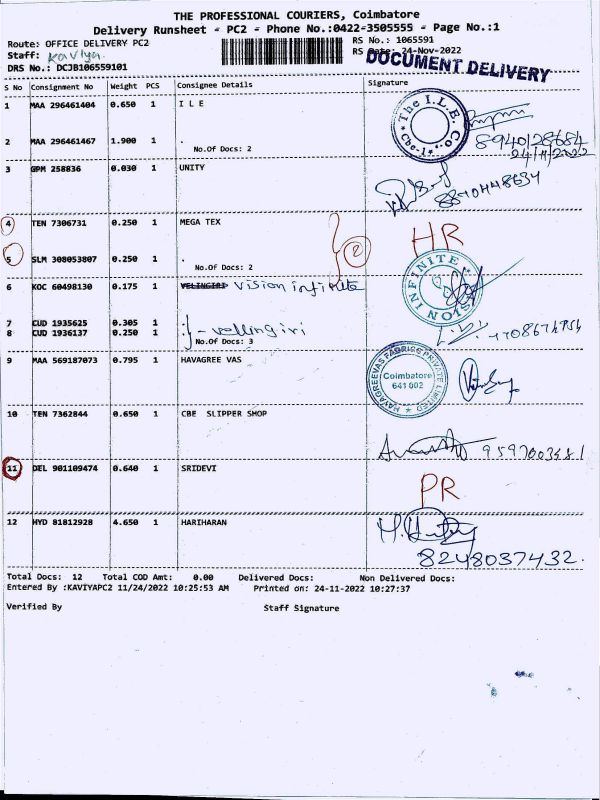 THE PROFESSIONAL COURIERS, Coimbatore
Delivery Runsheet - PC2 - Phone No.:0422-3505555 - Page No.:1
Route: OFFICE DELIVERY PC2 RS No.: 1065591
Staff: Kaviya. RS Date: 24-Nov-2022
DOCUMENT DELIVERY
DRS No.: DCJB106559101
S No Consignment No Weight PCS Consignee Details Signature
1 MAA 296461404 0.650 1 I L E
The I.L.E. Co. Cbe-1
2 MAA 296461467 1.900 1 . 8940128684
No.Of Docs: 2 24/11/2022
3 GPM 258836 0.030 1 UNITY
4 TEN 7306731 0.250 1 MEGA TEX
HR
2
5 SLM 308053807 0.250 1 .
No.Of Docs: 2
VISION INFINITE
6 KOC 60498130 0.175 1 VELINGIRI Vision infinite
7 CUD 1935625 0.305 1
8 CUD 1936137 0.250 1 - vellingiri
No.Of Docs: 3
9 MAA 569187073 0.795 1 HAVAGREE VAS
HAYAGREEVAS FABRICS PRIVATE LIMITED
Coimbatore
641 002
10 TEN 7362844 0.650 1 CBE SLIPPER SHOP
11 DEL 901109474 0.640 1 SRIDEVI
PR
12 HYD 81812928 4.650 1 HARIHARAN
8248037432.
Total Docs: 12 Total COD Amt: 0.00 Delivered Docs: Non Delivered Docs:
Entered By :KAVIYAPC2 11/24/2022 10:25:53 AM Printed on: 24-11-2022 10:27:37
Verified By Staff Signature